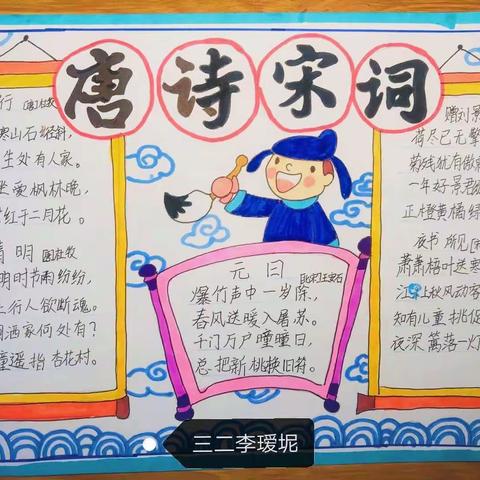 唐诗宋词
行 [唐]杜牧
寒山石径斜,
生处有人家。
坐爱枫林晚,
红于二月花。
清明 [唐]杜牧
明时节雨纷纷,
上行人欲断魂。
问酒家何处有?
童遥指杏花村。
元日
[北宋]王安石
爆竹声中一岁除,
春风送暖入屠苏。
千门万户曈曈日,
总把新桃换旧符。
赠刘景
荷尽已无擎
菊残犹有傲
一年好景君
正橙黄橘绿
夜书所见
萧萧梧叶送寒
江上秋风动客
知有儿童挑促
夜深篱落一灯
三二李瑷坭